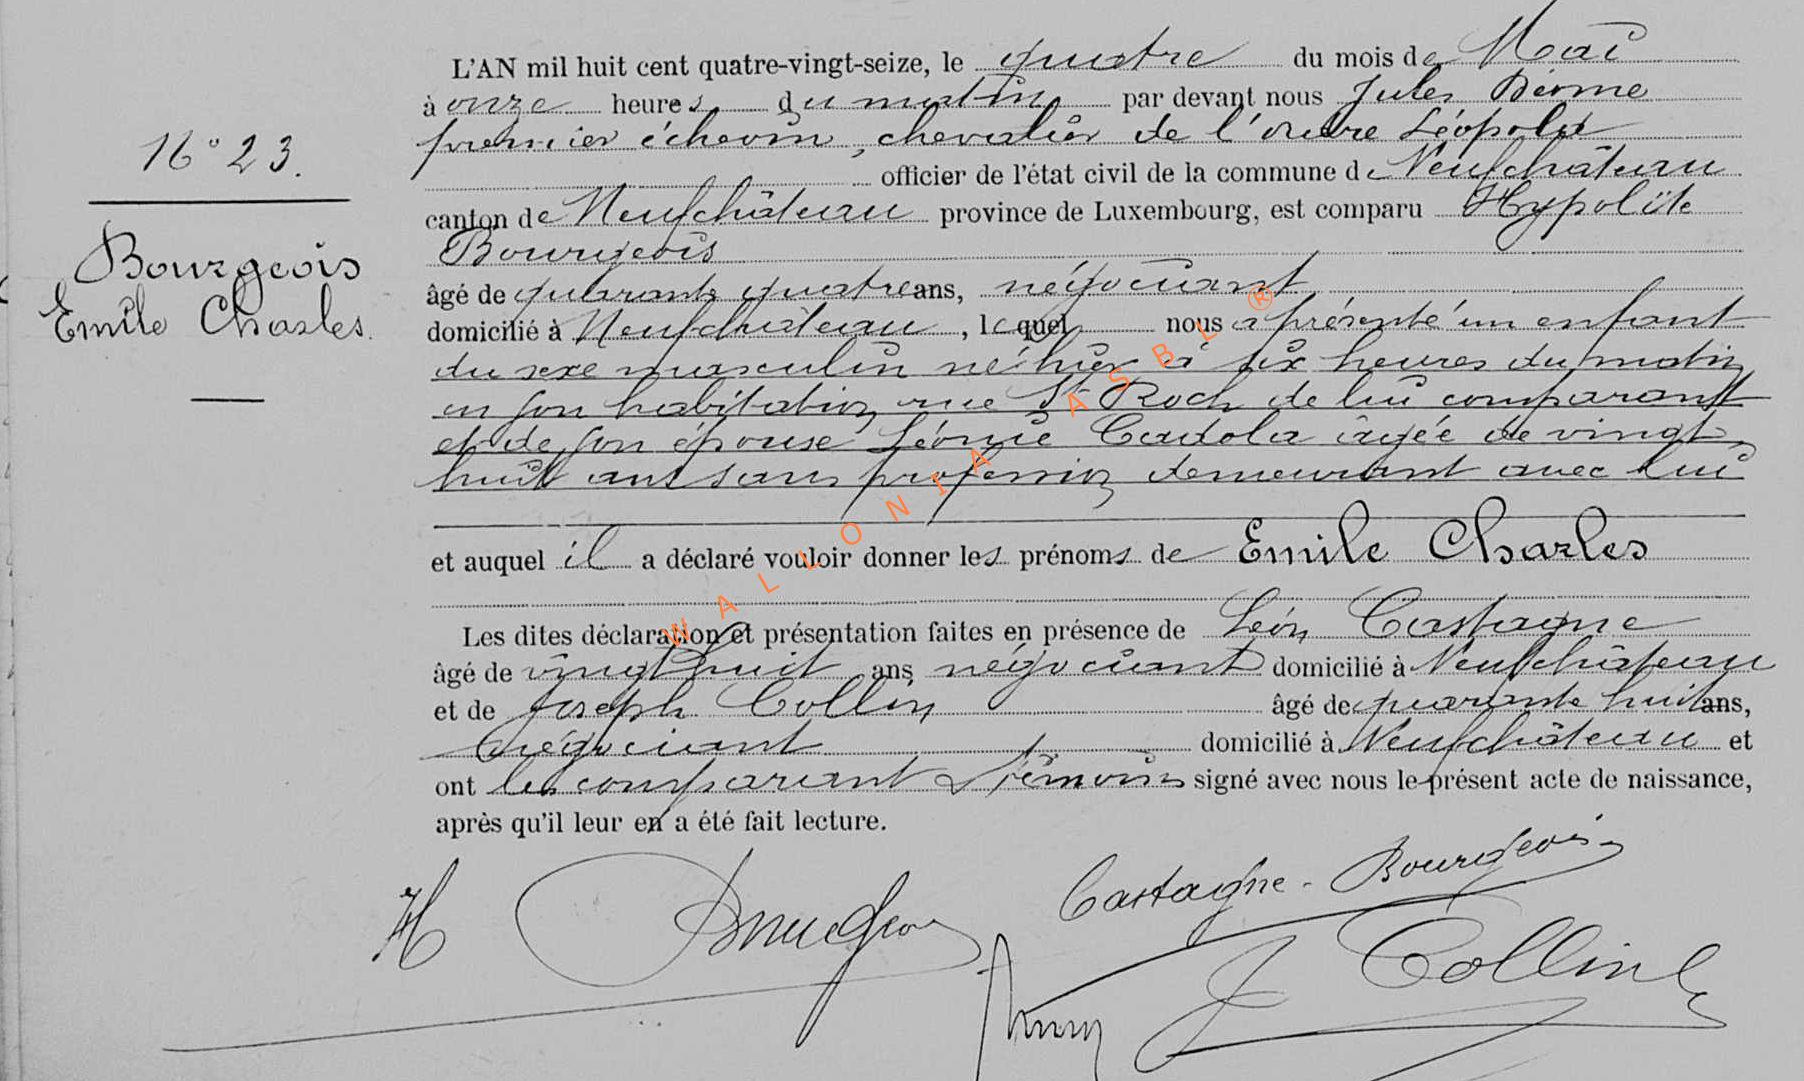 L'AN mil huit cent quatre-vingt-seize, le quatre du mois de Mai
à onze heures du matin par devant nous Jules
premier échevin, chevalier de l'ordre Léopold
N° 23.
officier de l'état civil de la commune de Neufchâteau
canton de Neufchâteau province de Luxembourg, est comparu Hypolite
Bourgeois
Bourgeois
Emile Charles.
âgé de quarante quatre ans, négociant
domicilié à Neufchâteau, lequel nous a présenté un enfant
du sexe masculin né hier à six heures du matin
en son habitation rue St Roch de lui comparant
et de son épouse Léonie Cadola âgée de vingt
huit ans sans profession demeurant avec lui
et auquel il a déclaré vouloir donner les prénoms de Emile Charles
Les dites déclaration et présentation faites en présence de Léon Castagne
âgé de vingt huit ans négociant domicilié à Neufchâteau
et de Joseph Collin âgé de quarante huit ans,
négociant domicilié à Neufchâteau et
ont les comparant & témoins signé avec nous le présent acte de naissance,
après qu'il leur en a été fait lecture.
H Bourgeois
Castagne-Bourgeois
J Collin
WALLONIA ASBL ®